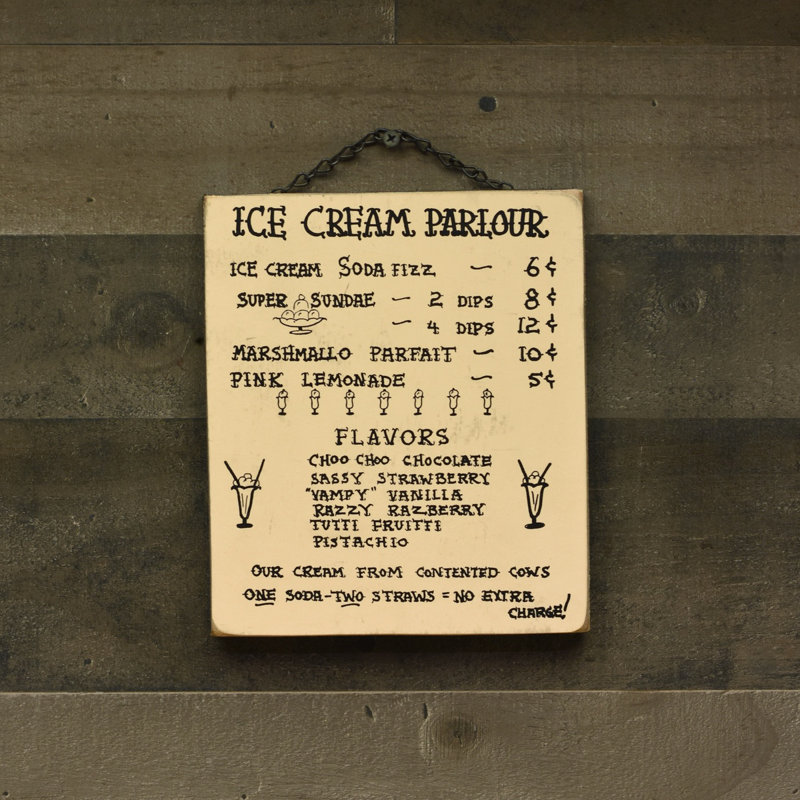 ICE CREAM PARLOUR
ICE CREAM SODA FIZZ — 6¢
SUPER SUNDAE — 2 DIPS 8¢
— 4 DIPS 12¢
MARSHMALLO PARFAIT — 10¢
PINK LEMONADE — 5¢
FLAVORS
CHOO CHOO CHOCOLATE
SASSY STRAWBERRY
"VAMPY" VANILLA
RAZZY RAZBERRY
TUTTI FRUITTI
PISTACHIO
OUR CREAM FROM CONTENTED COWS
ONE SODA-TWO STRAWS = NO EXTRA
CHARGE!